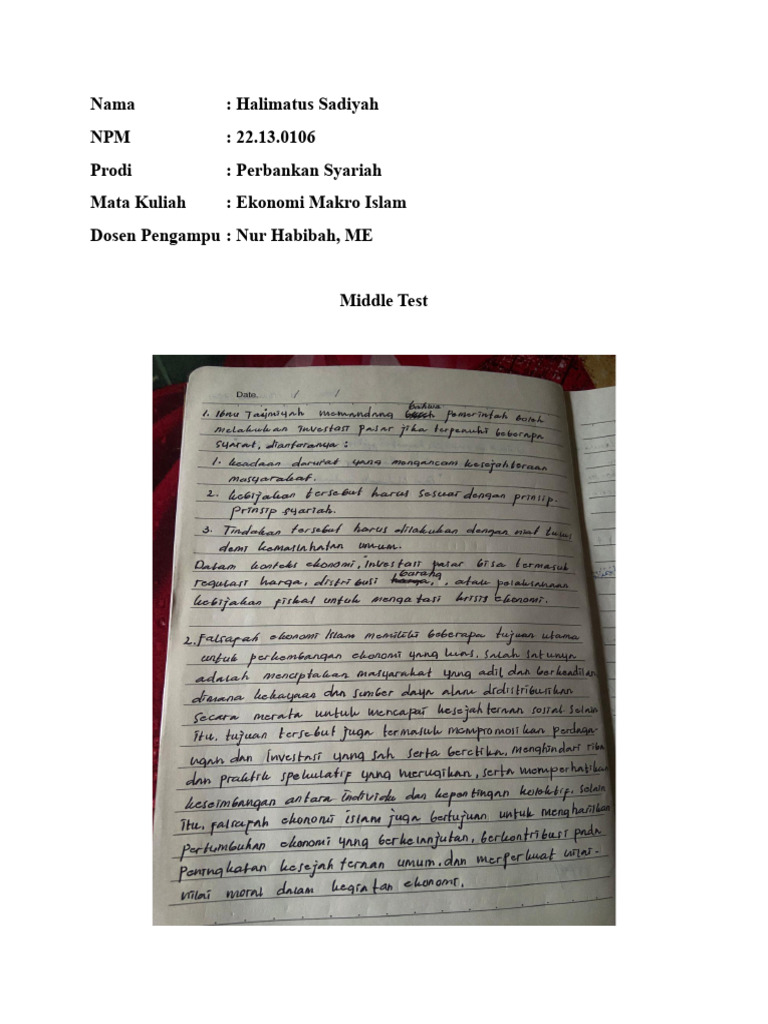 Nama : Halimatus Sadiyah
NPM : 22.13.0106
Prodi : Perbankan Syariah
Mata Kuliah : Ekonomi Makro Islam
Dosen Pengampu : Nur Habibah, ME
Middle Test
Date. / /
1. Ibnu Taimiyah memandang bahwa pemerintah boleh
melakukan investasi pasar jika terpenuhi beberapa
syarat, diantaranya :
1. keadaan darurat yang mengancam kesejahteraan
masyarakat.
2. kebijakan tersebut harus sesuai dengan prinsip-
prinsip syariah.
3. Tindakan tersebut harus dilakukan dengan niat tulus
demi kemaslahatan umum.
Dalam konteks ekonomi, investasi pasar bisa termasuk
regulasi harga, distribusi barang, atau pelaksanaan
kebijakan fiskal untuk mengatasi krisis ekonomi.
2. Falsapah ekonomi Islam memiliki beberapa tujuan utama
untuk perkembangan ekonomi yang luas, salah satunya
adalah menciptakan masyarakat yang adil dan berkeadilan
dimana kekayaan dan sumber daya alam didistribusikan
secara merata untuk mencapai kesejahteraan sosial selain
itu, tujuan tersebut juga termasuk mempromosikan perdaga-
ngan dan Investasi yang sah serta beretika, menghindari riba
dan praktik spekulatif yang merugikan, serta memperhatikan
keseimbangan antara individu dan kepentingan kolektif, selain
itu, falsapah ekonomi islam juga bertujuan untuk menghasilkan
pertumbuhan ekonomi yang berkelanjutan, berkontribusi pada
peningkatan kesejahteraan umum, dan memperkuat nilai-
nilai moral dalam kegiatan ekonomi.